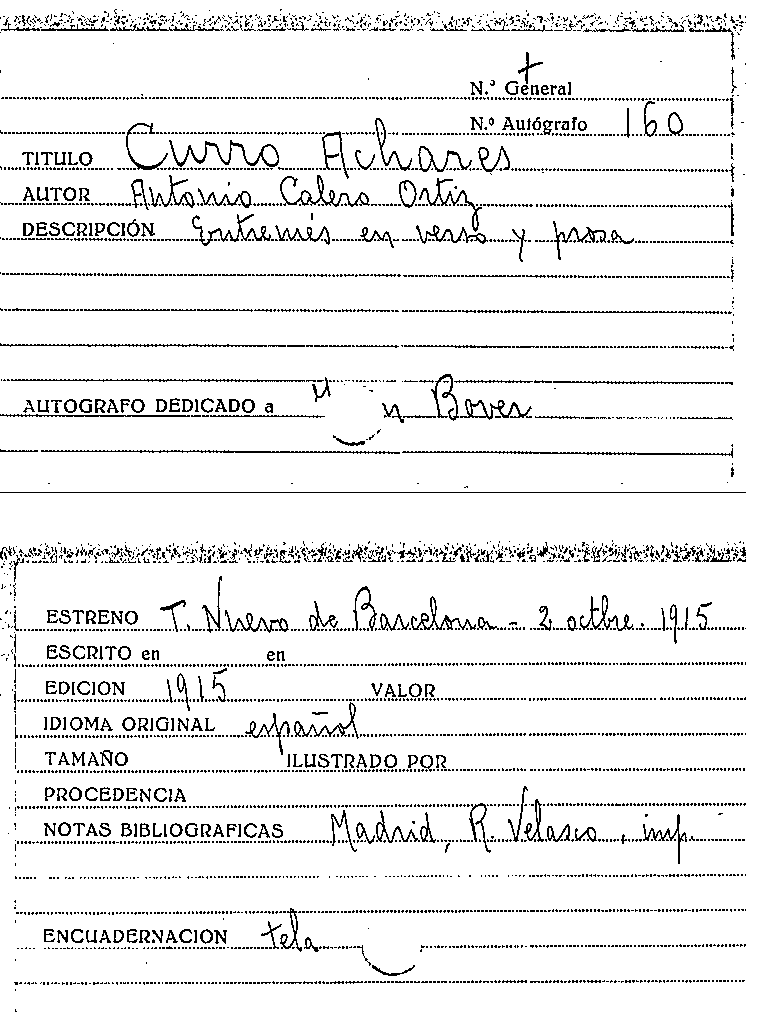 N.º General
N.º Autógrafo 160
TITULO Curro Achares
AUTOR Antonio Calero Ortiz
DESCRIPCIÓN Entremés en verso y prosa
AUTOGRAFO DEDICADO a Bover
ESTRENO T. Nuevo de Barcelona - 2 octbre. 1915
ESCRITO en en
EDICION 1915 VALOR
IDIOMA ORIGINAL español
TAMAÑO ILUSTRADO POR
PROCEDENCIA
NOTAS BIBLIOGRAFICAS Madrid, R. Velasco, imp.
ENCUADERNACION tela